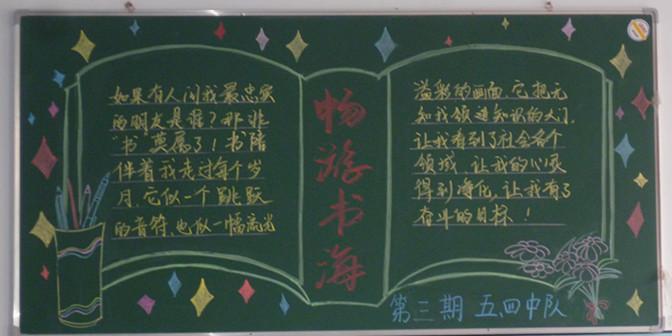 如果有人问我最忠实
的朋友是谁？那非
“书”莫属了！书陪
伴着我走过每个岁
月，它似一个跳跃
的音符，也似一幅流光
畅游书海
溢彩的画面，它把无
知我领进知识的大门，
让我看到了社会各个
领域，让我的心灵
得到净化，让我有了
奋斗的目标！
第三期 五.四中队